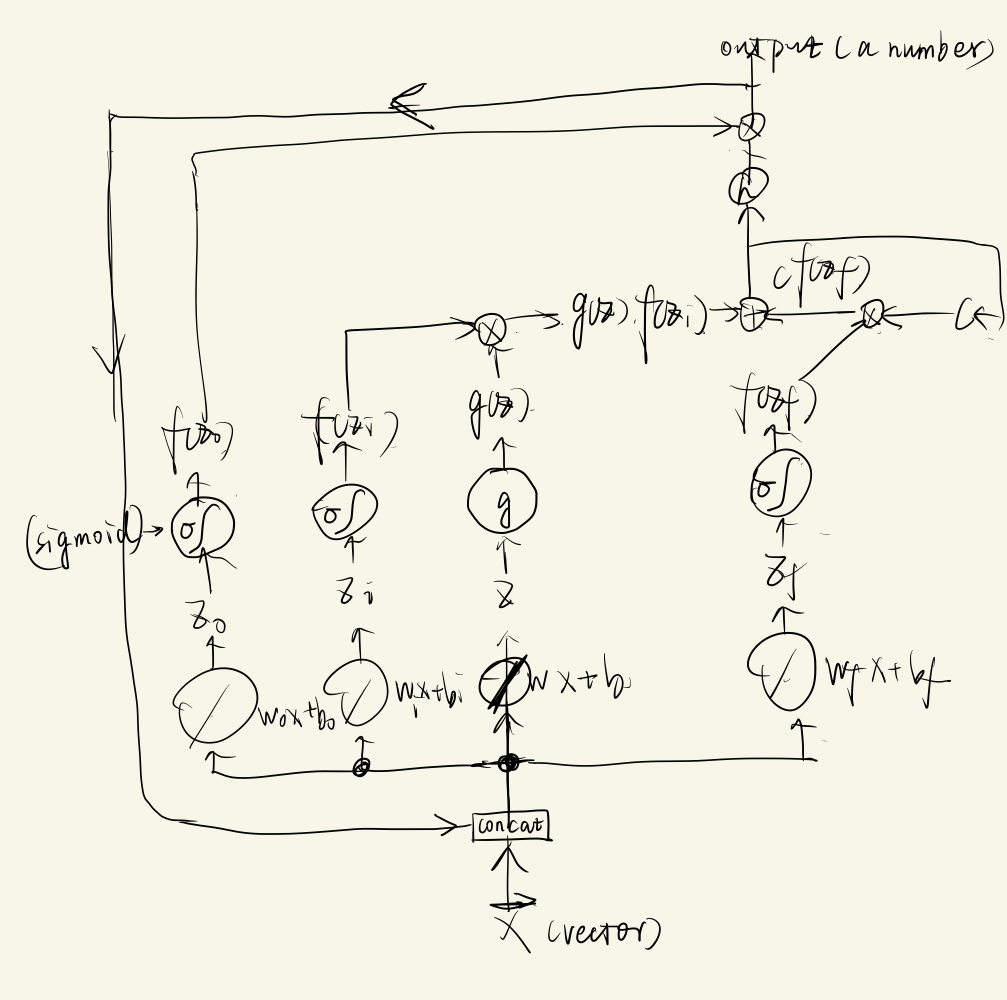 output (a number)
h
c f(zf)
g(z) f(zi)
c
f(z0)
f(zi)
g(z)
f(zf)
(sigmoid)
σ
σ
g
σ
z0
zi
z
zf
w0x+b0
wix+bi
wx+b
wfx+bf
concat
x (vector)